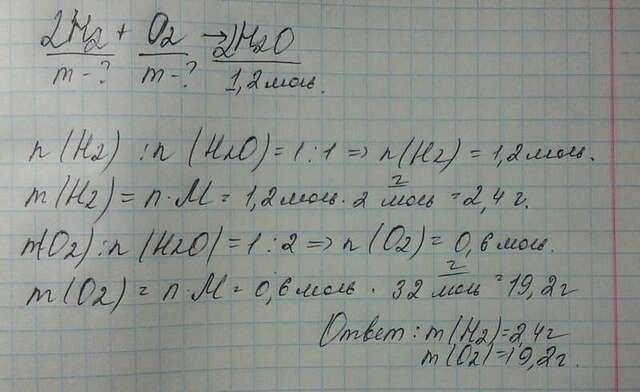 2H2 + O2 → 2H2O
m - ? m - ? 1,2 моль.
n (H2) : n (H2O) = 1 : 1 => n(H2) = 1,2 моль.
m (H2) = n · M = 1,2 моль · 2 г/моль = 2,4 г.
n(O2) : n (H2O) = 1 : 2 => n (O2) = 0,6 моль.
m (O2) = n · M = 0,6 моль · 32 г/моль = 19,2 г
Ответ: m (H2) = 2,4 г
m (O2) = 19,2 г.